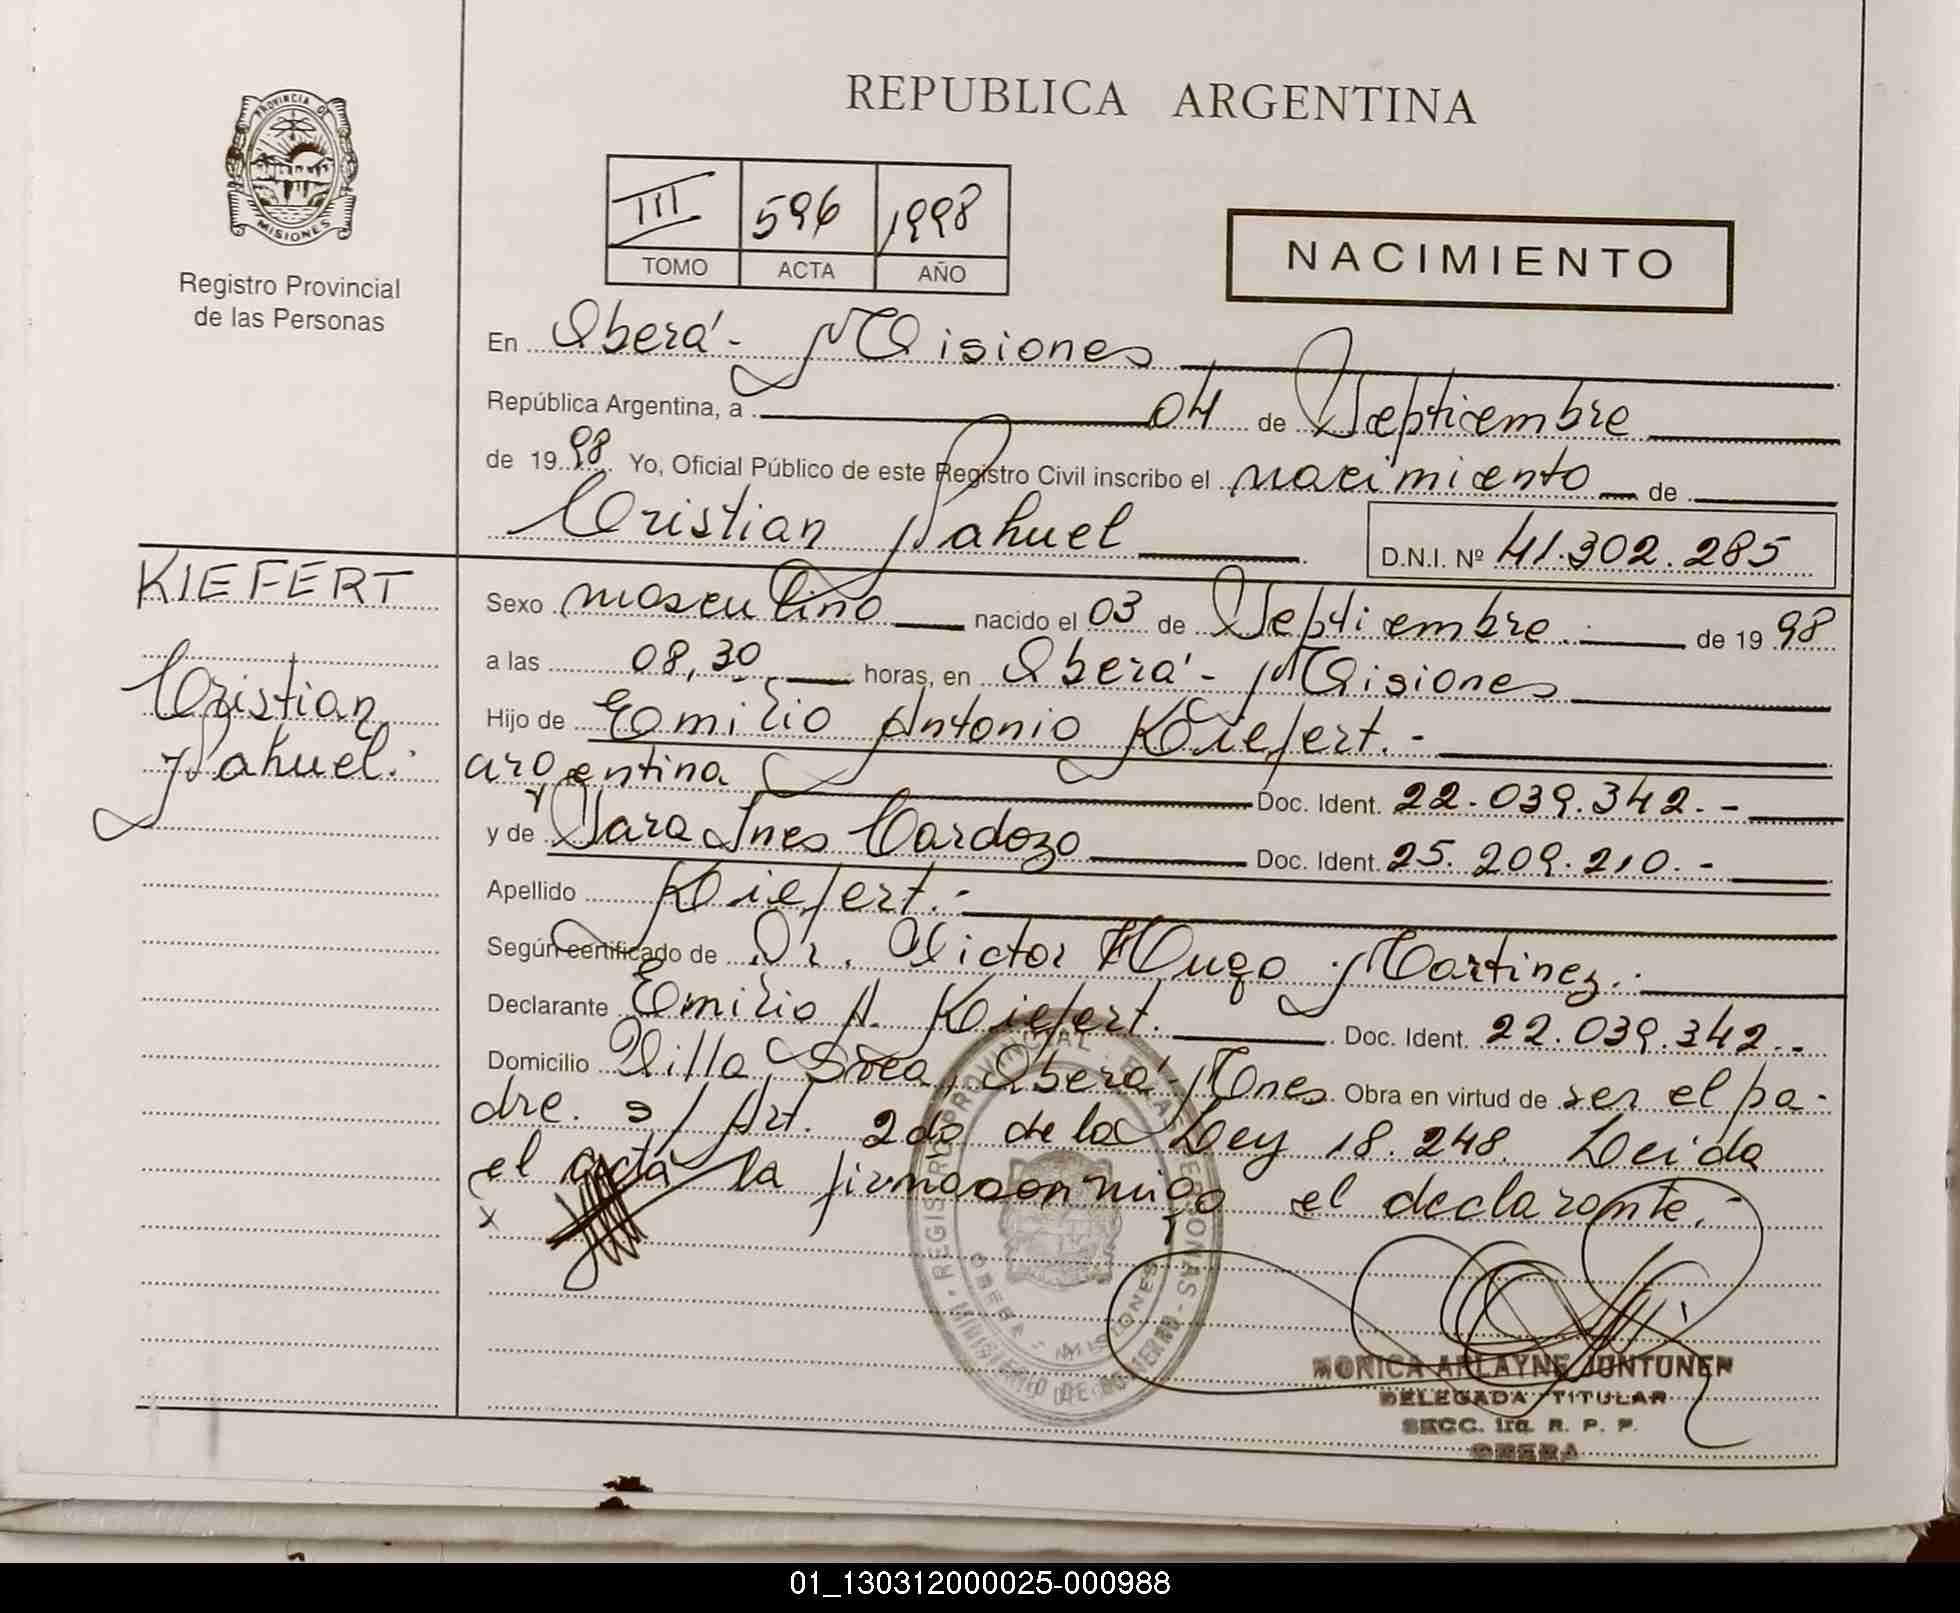 REPUBLICA ARGENTINA
PROVINCIA DE
MISIONES
Registro Provincial
de las Personas
III 596 1998
TOMO ACTA AÑO
NACIMIENTO
En Oberá - Misiones
República Argentina, a 04 de Septiembre
de 19 98 Yo, Oficial Público de este Registro Civil inscribo el nacimiento de
Cristian Nahuel
D.N.I. Nº 41.302.285
KIEFERT
Cristian
Nahuel.
Sexo masculino nacido el 03 de Septiembre. de 19 98
a las 08,30 horas, en Oberá - Misiones
Hijo de Emilio Antonio Kiefert.-
argentina Doc. Ident. 22.039.342.-
y de Sara Ines Cardozo Doc. Ident. 25.209.210.-
Apellido Kiefert.-
Según certificado de Dr. Victor Hugo Martinez.
Declarante Emilio A. Kiefert. Doc. Ident. 22.039.342.-
Domicilio Villa Svea, Oberá - Mnes. Obra en virtud de ser el pa-
dre. s/ Art. 2do de la Ley 18.248. Leida
el acta la firma conmigo el declarante.-
x
REGISTRO PROVINCIAL DE LAS PERSONAS - MINISTERIO DE GOBIERNO
OBERA MISIONES
MONICA ARLAYNE JUNTUNEN
DELEGADA TITULAR
SECC. 1ra. R. P. P.
OBERA
01_130312000025-000988